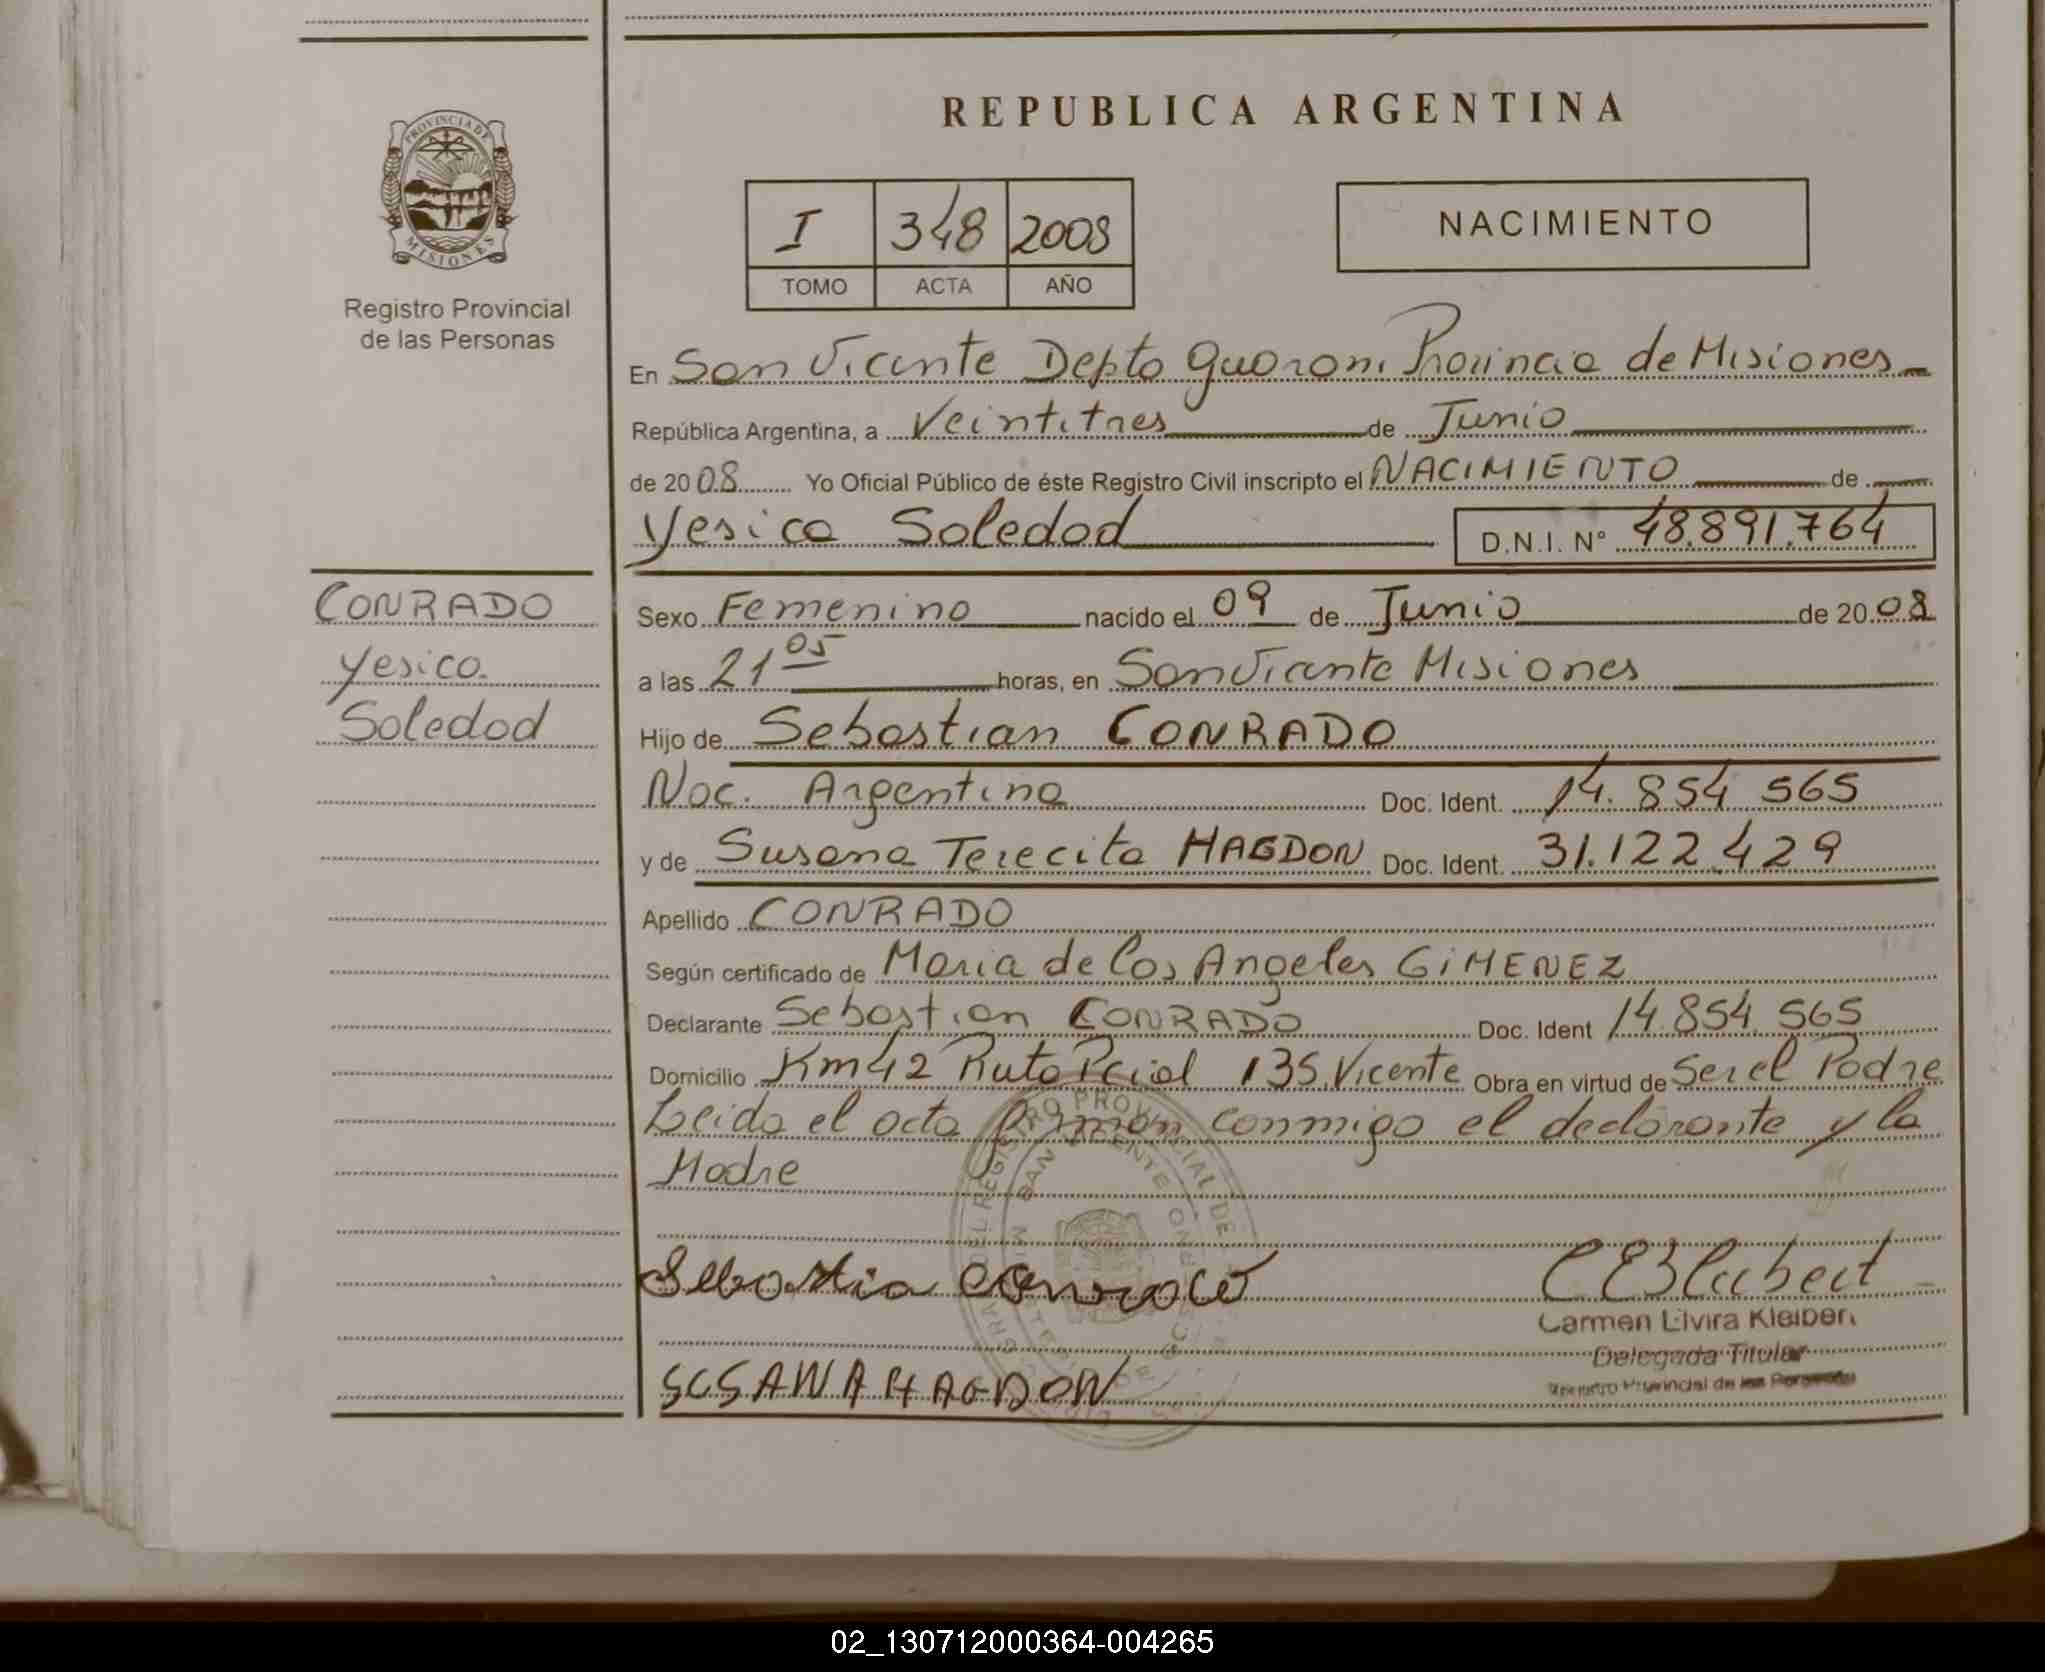 PROVINCIA DE MISIONES
Registro Provincial
de las Personas
CONRADO
Yesica
Soledad
REPUBLICA ARGENTINA
I 348 2008
TOMO ACTA AÑO
NACIMIENTO
En San Vicente Depto Guarani Provincia de Misiones
República Argentina, a Veintitres de Junio
de 2008 Yo Oficial Público de éste Registro Civil inscripto el NACIMIENTO de
Yesica Soledad D.N.I. N° 48.891.764
Sexo Femenino nacido el 09 de Junio de 2008
a las 21 05 horas, en San Vicente Misiones
Hijo de Sebastian CONRADO
Nac. Argentina Doc. Ident. 14.854 565
y de Susana Terecita HAGDON Doc. Ident. 31.122.429
Apellido CONRADO
Según certificado de Maria de los Angeles GIMENEZ
Declarante Sebastian CONRADO Doc. Ident 14.854.565
Domicilio Km 42 Ruta Pcial 13 S. Vicente Obra en virtud de Ser el Padre
Leida el acta firman conmigo el declarante y la
Madre
Carmen Elvira Kleibert
Delegada Titular
Registro Provincial de las Personas
SUSANA HAGDON
02_130712000364-004265